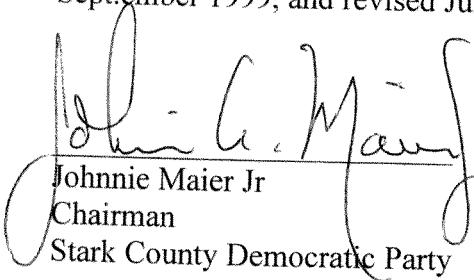 September 1999, and revised Ju
Johnnie A. Maier Jr
Johnnie Maier Jr
Chairman
Stark County Democratic Party